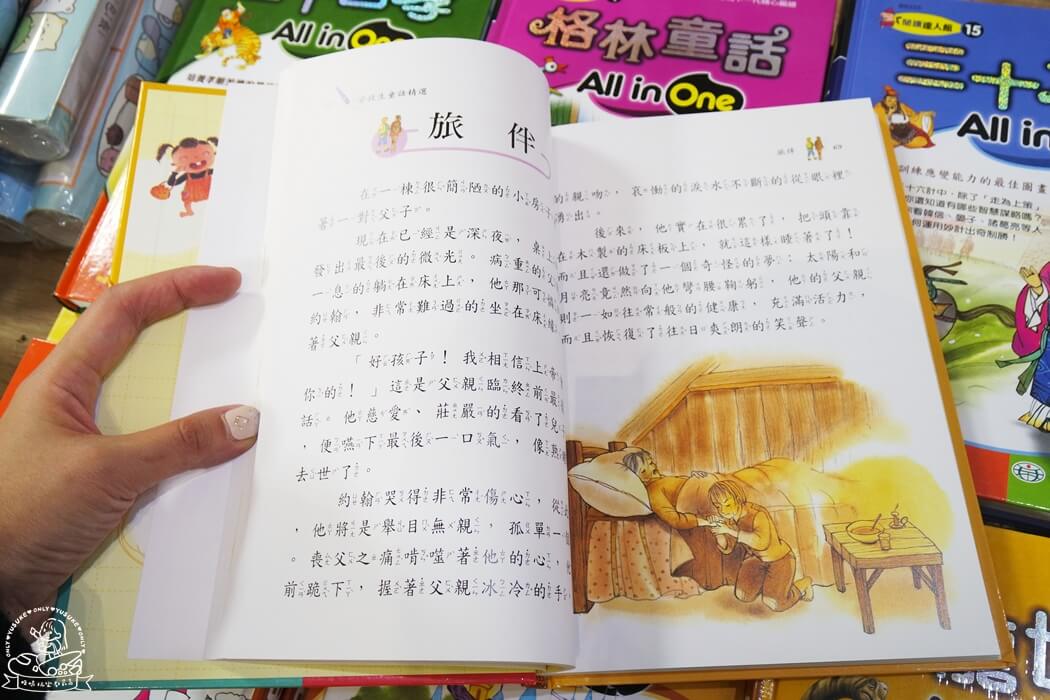 All in One
格林童話
All in One
閱讀達人館 15
三十
All in
訓練應變能力的最佳圖畫
十六計中，除了「走為上策」
你還知道有哪些智慧謀略嗎？
看韓信、晏子、諸葛亮等人
何運用妙計出奇制勝！
童話精選
旅伴
在一棟很簡陋的小房
著一對父子。
現在已經是深夜，桌上
發出最後的微光。病重的父
一息的躺在床上，他那可
約翰，非常難過的坐在床
著父親。
「好孩子！我相信上帝
你的！」這是父親臨終前最
話。他慈愛、莊嚴的看了兒
，便嚥下最後一口氣，像熟
去世了。
約翰哭得非常傷心，從
，他將是舉目無親，孤單一
。喪父之痛啃噬著他的心，
前跪下，握著父親冰冷的手
旅伴
69
的親吻，哀慟的淚水不斷的從眼裡
湧出。
後來，他實在很累了，把頭靠
在木製的床板上，就這樣睡著了！
而且還做了一個奇怪的夢：太陽和
月亮竟然向他彎腰鞠躬，他的父親
則一如往常般的健康，充滿活力，
而且恢復了往日爽朗的笑聲。
ONLY♥YUSUKE♥ONLY♥YUSUKE♥ONLY